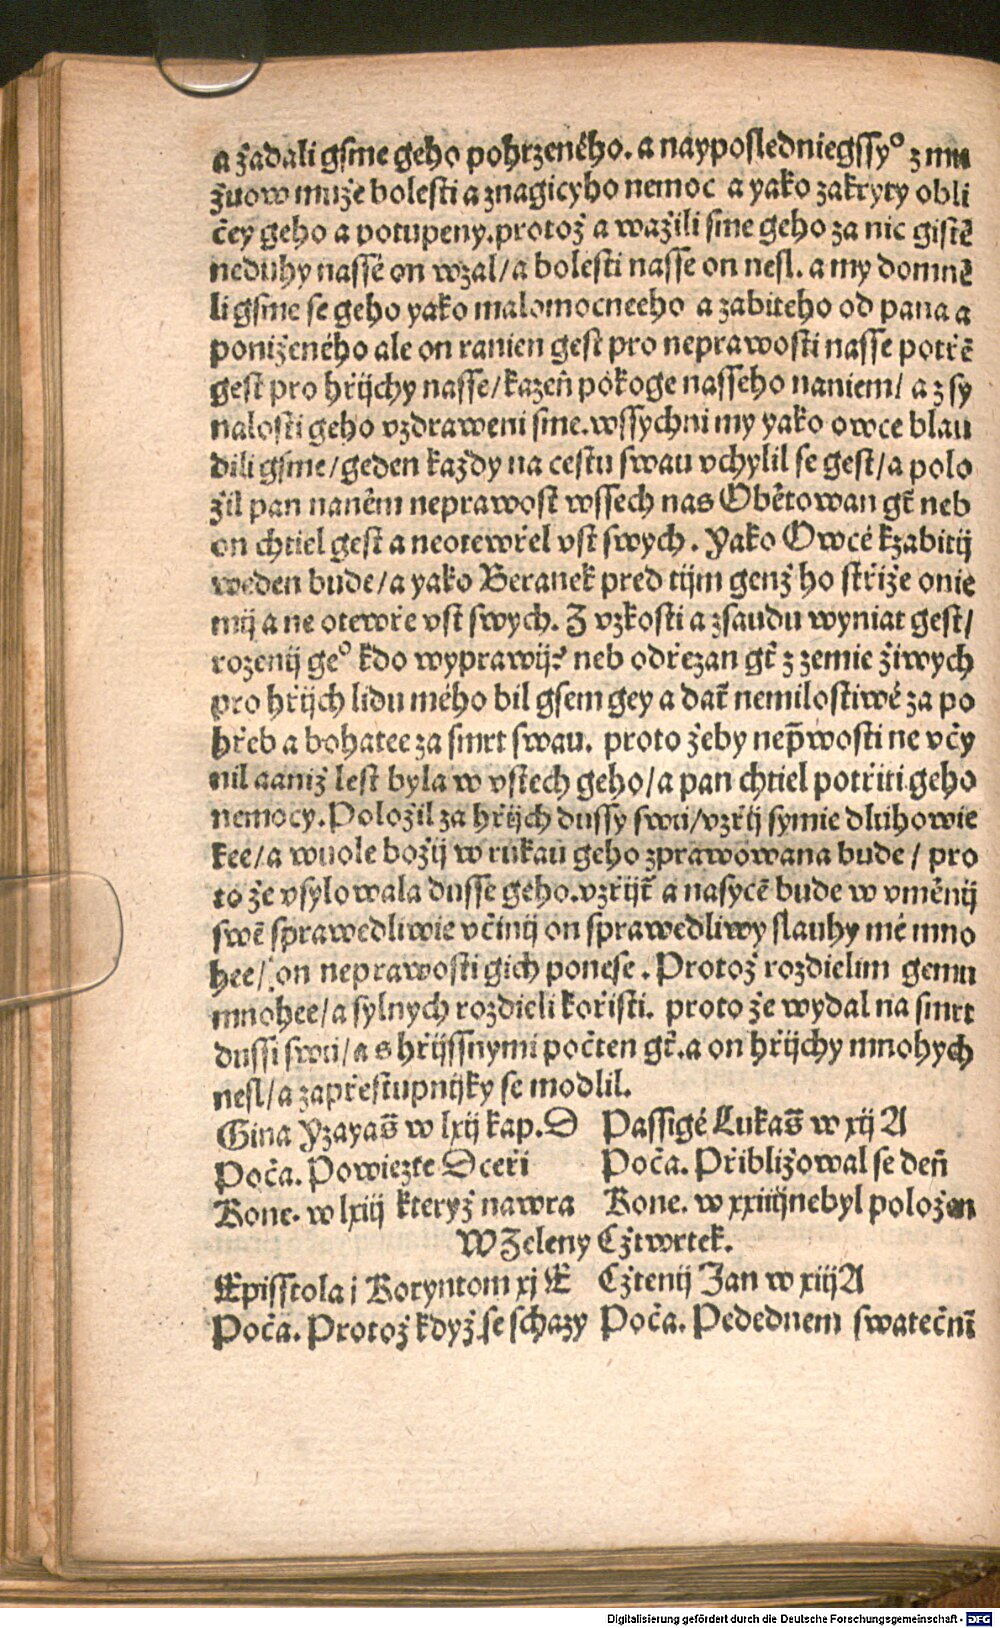 a žadali gsme geho pohrzeného. a nayposledniegssy° z mu
žuow muže bolesti a znagicyho nemoc a yako zakryty obli
čey geho a potupeny. protož a wažili sme geho za nic gistē
neduhy nassé on wzal/a bolesti nasse on nesl. a my domně
li gsme se geho yako malomocneeho a zabiteho od pana a
poniženého ale on ranien gest pro neprawosti nasse potřē
gest pro hřijchy nasse/kazeň pokoge nasseho naniem/ a z sy
nalosti geho vzdraweni sme. wssychni my yako owce blau
dili gsme/geden každy na cestu swau vchylil se gest/a polo
žil pan naněm neprawost wssech nas Obětowan gt̄ neb
on chtiel gest a neotewřel vst swych. Yako Owcé kzabitij
weden bude/a yako Beranek pred tijm genž ho střiže onie
mij a ne otewře vst swych. Z vzkosti a zsaudu wyniat gest/
rozenij ge° kdo wyprawij? neb odřezan gt̄ z zemie žiwych
pro hřijch lidu mého bil gsem gey a dat̄ nemilostiwé za po
hřeb a bohatee za smrt swau. proto žeby nep̄wosti ne včy
nil aaniž lest byla w vstech geho/a pan chtiel potřiti geho
nemocy. Položil za hřijch dussy swu/vzřij symie dluhowie
kee/a wuole božij w rukau geho zprawowana bude / pro
to že vsylowala dusse geho. vzřijt̄ a nasycē bude w vměnij
swē sprawedliwie včinij on sprawedliwy slauhy mé mno
hee/ on neprawosti gich ponese. Protož rozdielim gemu
mnohee/a sylnych rozdieli kořisti. proto že wydal na smrt
dussi swu/a s hřijssnymi počten gt̄. a on hřijchy mnohych
nesl/a zapřestupnijky se modlil.
Gina Yzayas̄ w lxij kap. D   Passigé Lukas̄ w xij A
Poča. Powiezte Dceři   Poča. Přibližowal se deň
Kone. w lxiij kteryž nawra   Kone. w xxiiij nebyl položen
W Zeleny Cžtwrtek.
Episstola i Koryntom xj E   Cžtenij Jan w xiij A
Poča. Protož když se schazy   Poča. Pedednem swatečnī
Digitalisierung gefördert durch die Deutsche Forschungsgemeinschaft - DFG